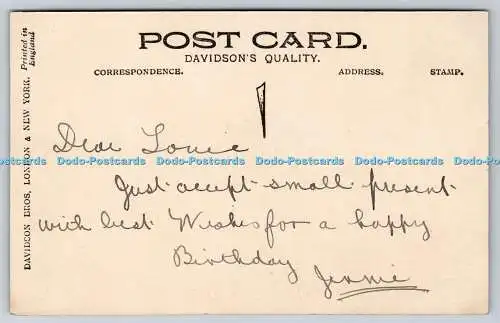 POST CARD.
DAVIDSON'S QUALITY.
CORRESPONDENCE. ADDRESS. STAMP.
Printed in
England
DAVIDSON BROS. LONDON & NEW YORK.
Dear Lonie
Dodo-Postcards Dodo-Postcards Dodo-Postcards Dodo-Postcards Dodo-Postcards
Just accept small present
with best Wishes for a happy
Birthday
Jennie